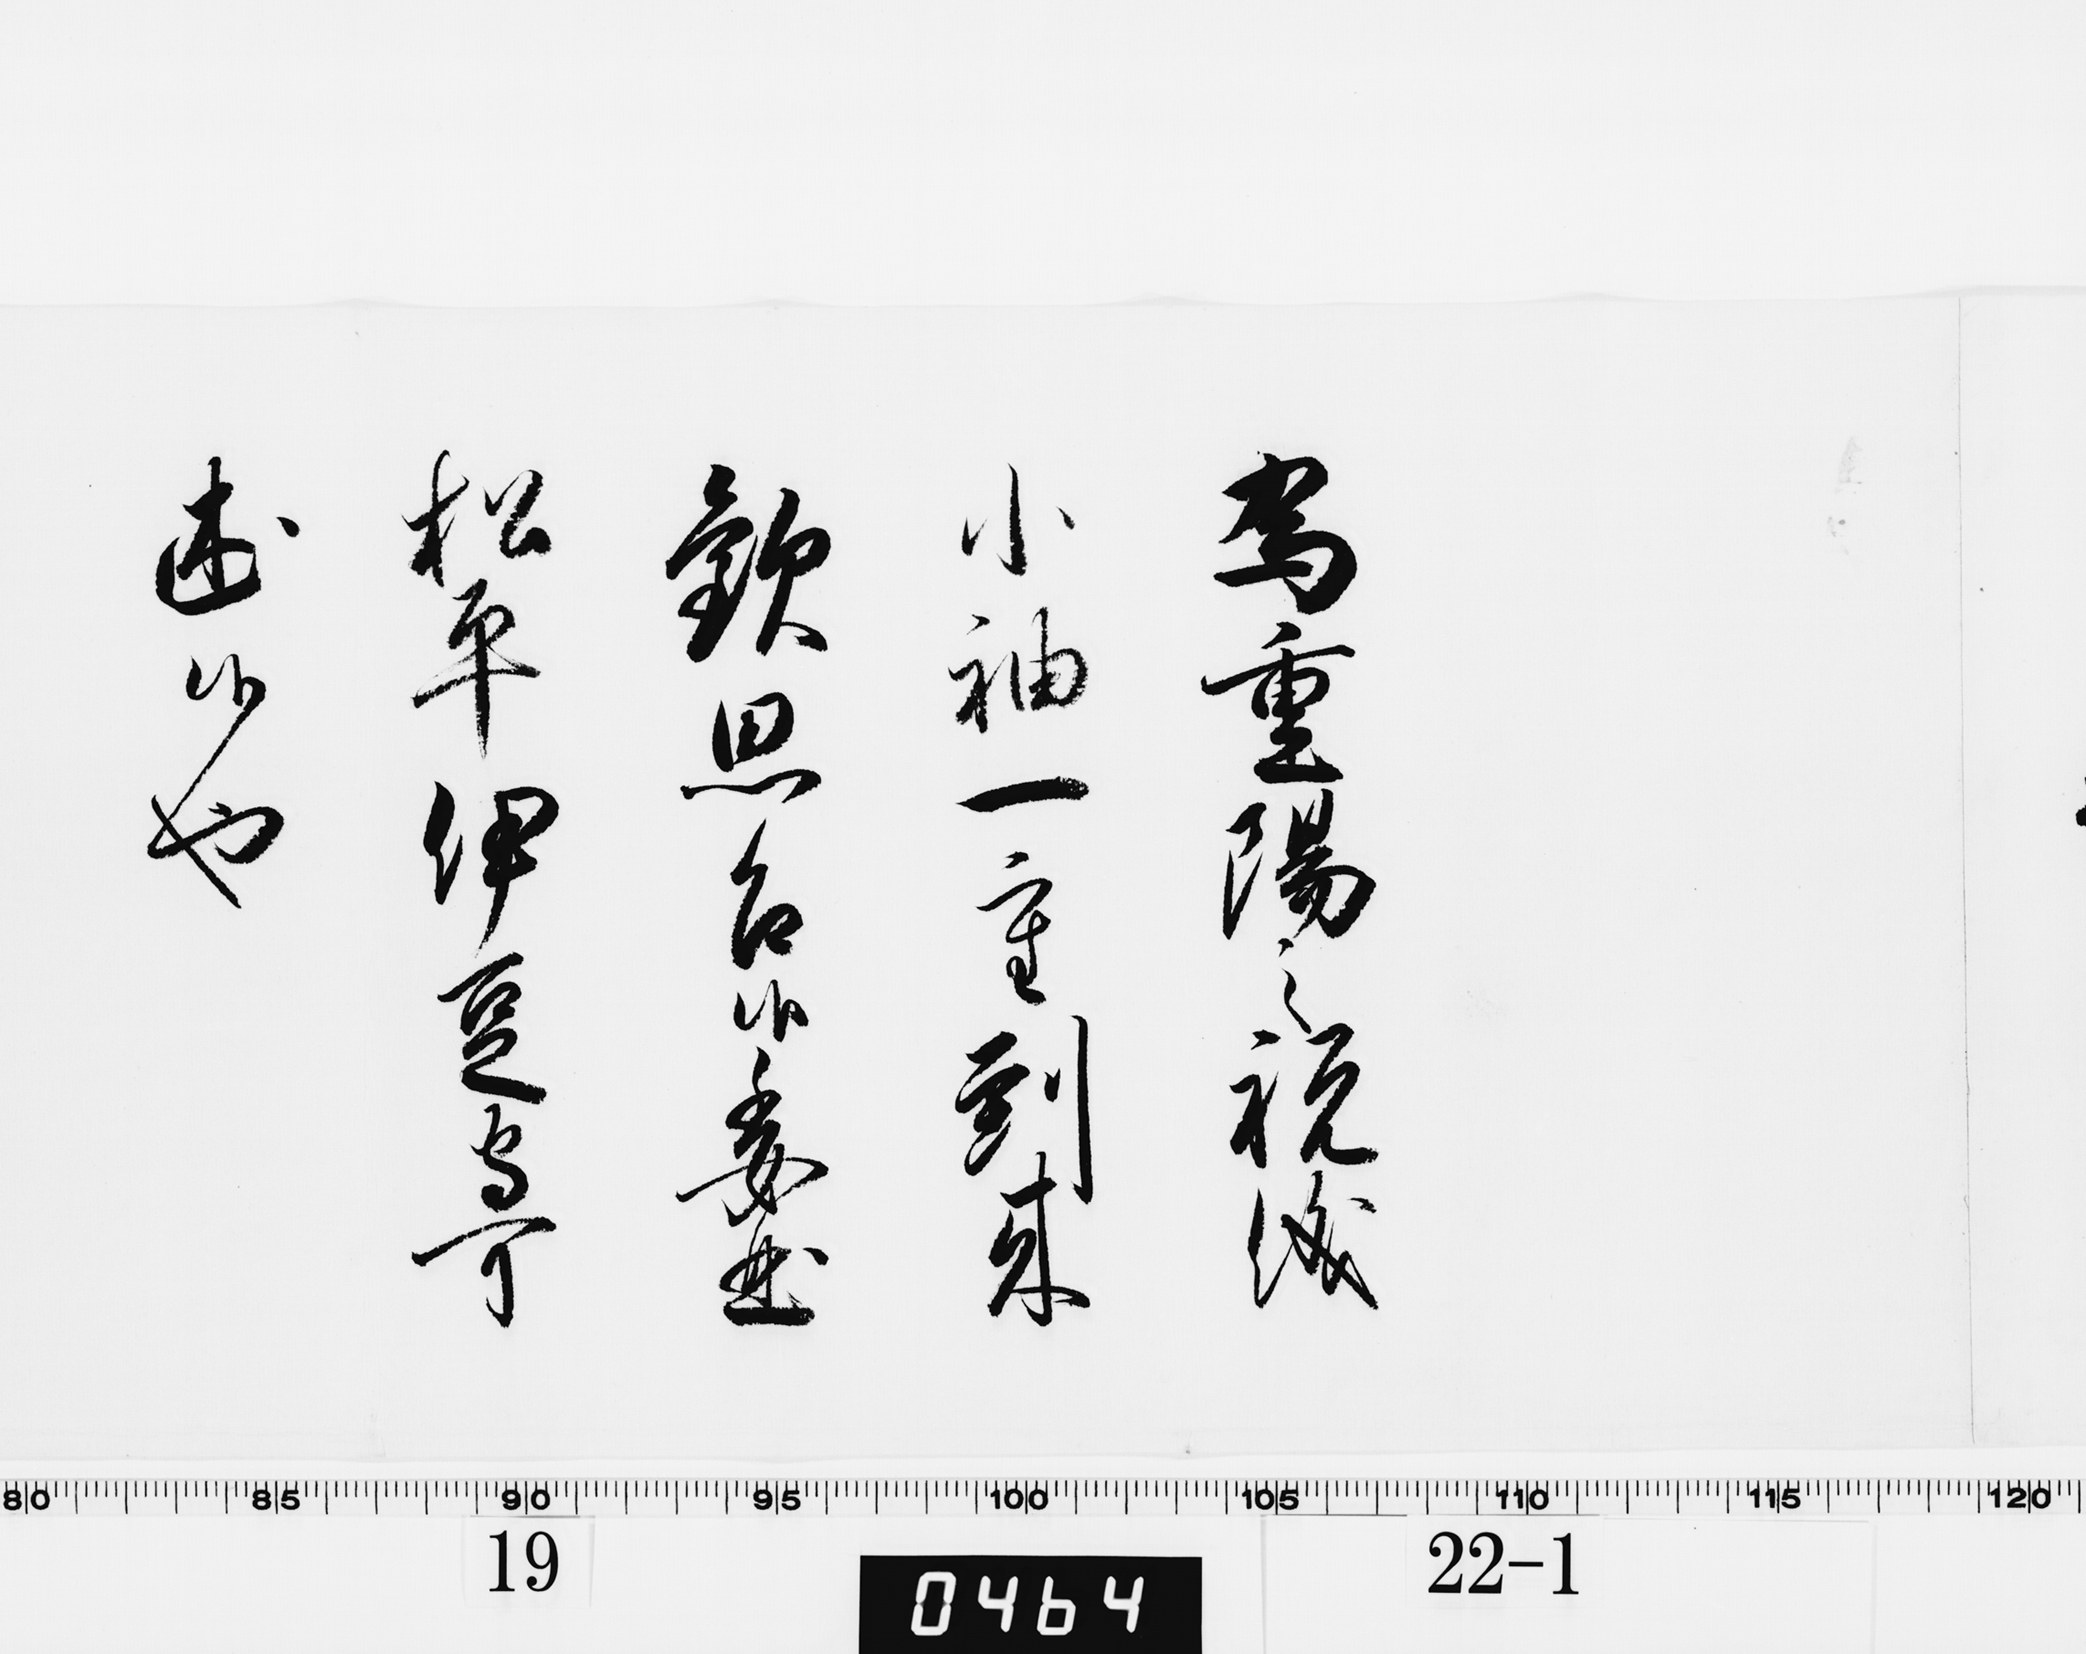 為重陽之祝儀
小袖一重到来
歓思召候委曲
松平伊豆守可
述候也
80 85 90 95 100 105 110 115 120
19
0464
22-1